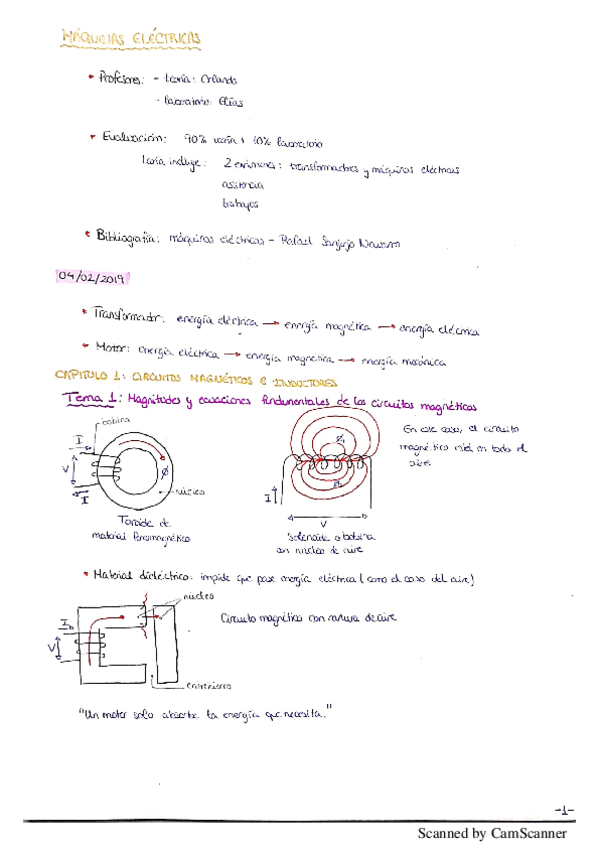 MÁQUINAS ELÉCTRICAS
• Profesores: - Teoría: Orlando
- Laboratorio: Elías
• Evaluación: 90% teoría + 10% laboratorio
Teoría incluye: 2 exámenes: transformadores y máquinas eléctricas
asistencia
trabajos
• Bibliografía: máquinas eléctricas - Rafael Sanjurjo Navarro
04/02/2019
• Transformador: energía eléctrica → energía magnética → energía eléctrica
• Motor: energía eléctrica → energía magnética → energía mecánica
CAPITULO 1: CIRCUITOS MAGNÉTICOS E INDUCTORES
Tema 1: Magnitudes y ecuaciones fundamentales de los circuitos magnéticos
bobina
I
V
I
Φ
núcleo
Toroide de
material ferromagnético
Φ
I
V
Solenoide o bobina
con núcleo de aire
En este caso, el circuito
magnético está en todo el
aire.
• Material dieléctrico: impide que pase energía eléctrica (como el caso del aire)
núcleo
V
Circuito magnético con ranura de aire
entrehierro
"Un motor solo absorbe la energía que necesita."
-1-
Scanned by CamScanner